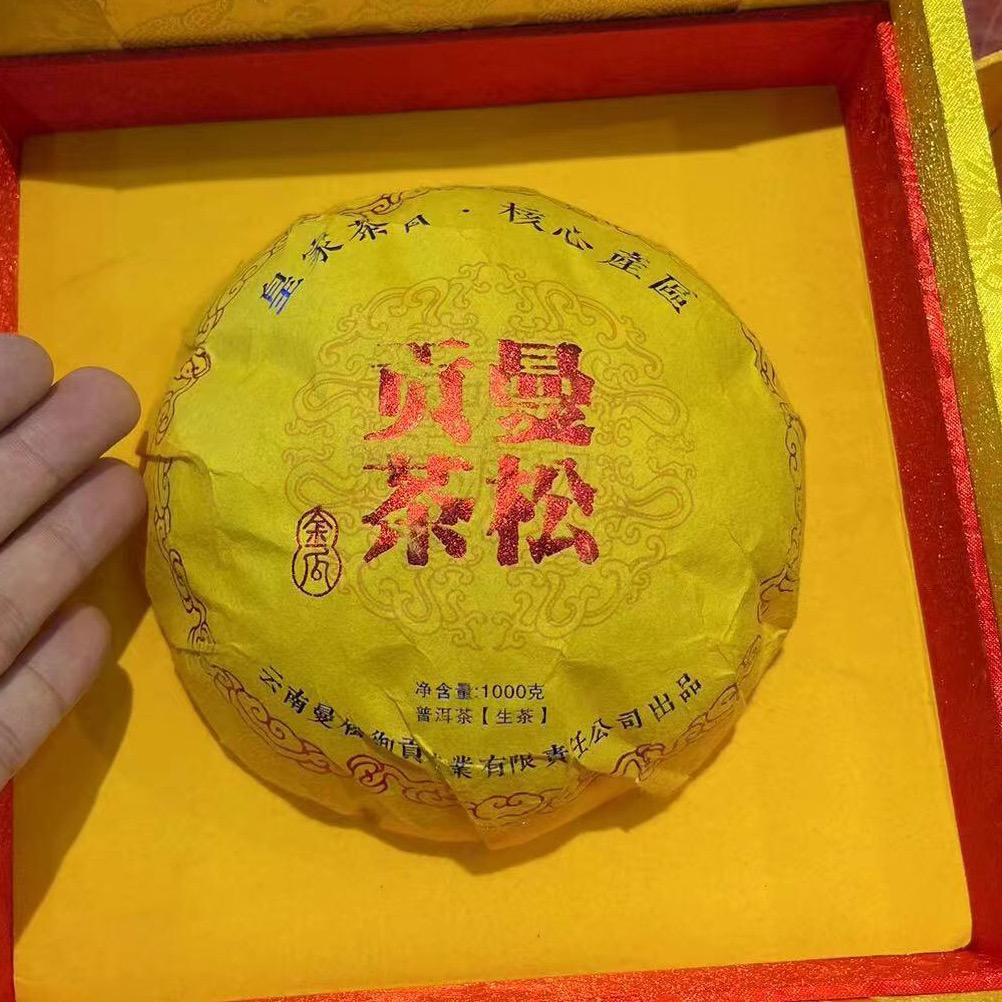 皇家茶 · 核心產區
曼松
贡茶
金瓜
净含量:1000克
普洱茶【生茶】
云南曼松御貢業有限责任公司出品